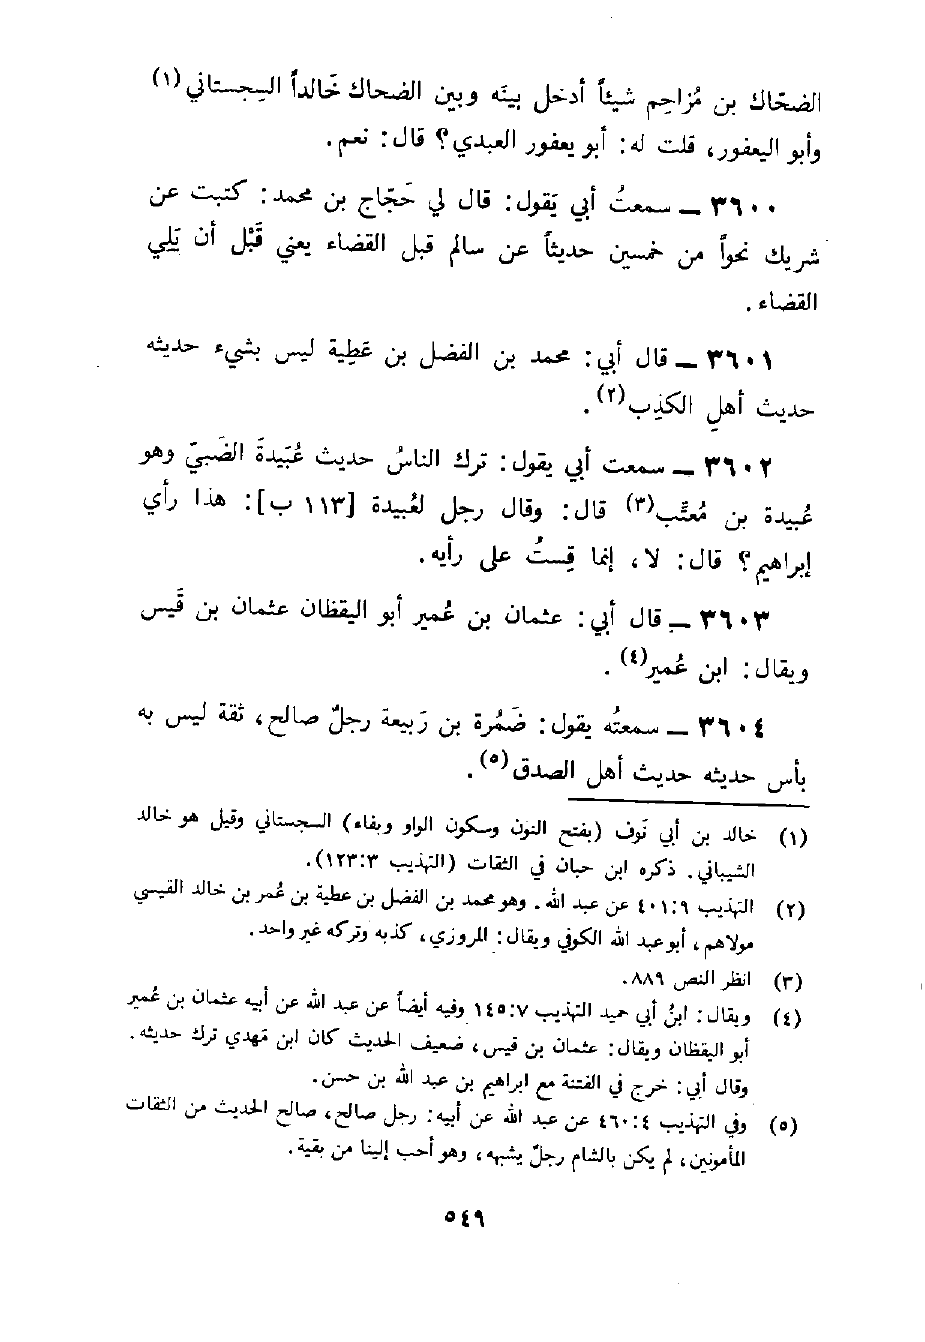 الضحّاك بن مُزاحِم شيئاً أدخل بينَه وبين الضحاك خَالداً السِجستاني (١)
وأبو اليعفور، قلت له: أبو يعفور العبدي؟ قال: نعم.
٣٦٠٠ ــ سمعتُ أبي يَقول: قال لي حَجّاج بن محمد: كتبت عن
شريك نحواً من خمسين حديثاً عن سالم قبل القضاء يعني قَبْل أن يَلي
القضاء.
٣٦٠١ ــ قال أبي: محمد بن الفضل بن عَطِية ليس بشيء حديثه
حديث أهلِ الكذِب (٢).
٣٦٠٢ ــ سمعت أبي يقول: ترك الناسُ حديث عُبَيدةَ الضَبيّ وهو
عُبيدة بن مُعتِّب (٣) قال: وقال رجل لعُبيدة [١١٣ ب]: هذا رأي
إبراهيم؟ قال: لا، إنما قِستُ على رأيه.
٣٦٠٣ ــ قال أبي: عثمان بن عُمير أبو اليقظان عثمان بن قَيس
ويقال: ابن عُمير (٤).
٣٦٠٤ ــ سمعتُه يقول: ضَمُرة بن رَبيعة رجلٌ صالح، ثقة ليس به
بأس حديثه حديث أهل الصدق (٥).
(١) خالد بن أبي نَوف (بفتح النون وسكون الواو وبفاء) السجستاني وقيل هو خالد
الشيباني. ذكره ابن حبان في الثقات (التهذيب ١٢٣:٣).
(٢) التهذيب ٤٠١:٩ عن عبد الله. وهو محمد بن الفضل بن عطية بن عُمر بن خالد القيسي
مولاهم، أبو عبد الله الكوفي ويقال: المروزي، كذبه وتركه غير واحد.
(٣) انظر النص ٨٨٩.
(٤) ويقال: ابنُ أبي حميد التهذيب ١٤٥:٧ وفيه أيضاً عن عبد الله عن أبيه عثمان بن عُمير
أبو اليقظان ويقال: عثمان بن قيس، ضعيف الحديث كان ابن مَهدي ترك حديثه.
وقال أبي: خرج في الفتنة مع ابراهيم بن عبد الله بن حسن.
(٥) وفي التهذيب ٤٦٠:٤ عن عبد الله عن أبيه: رجل صالح، صالح الحديث من الثقات
المأمونين، لم يكن بالشام رجلٌ يشبهه، وهو أحب إلينا من بقية.
٥٤٩